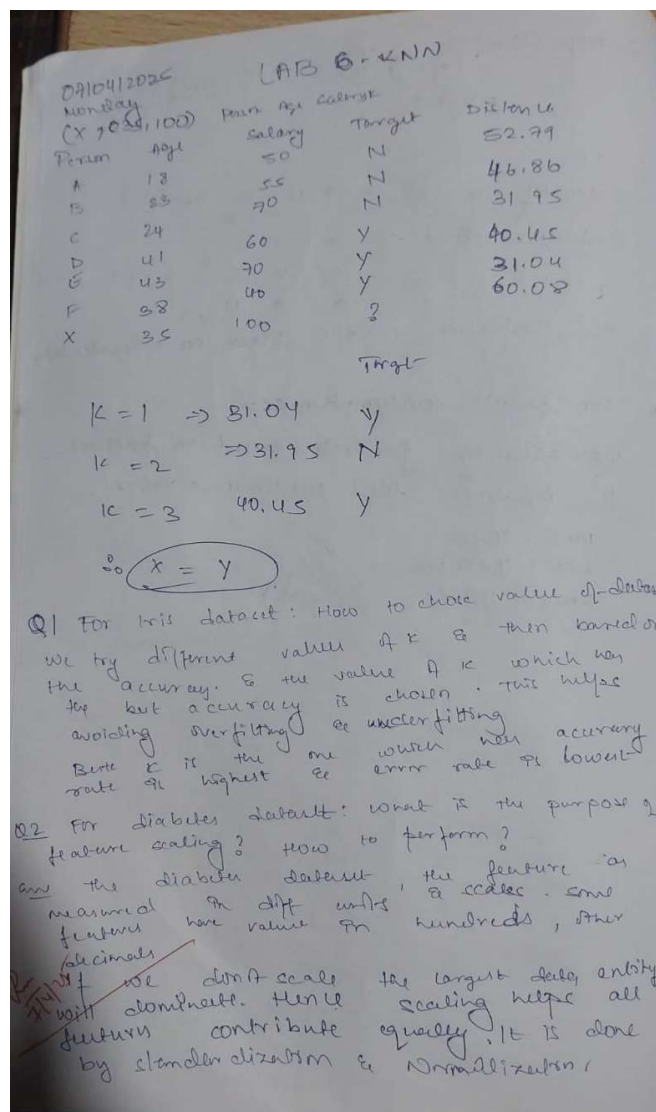 07/04/2025 LAB 6 - KNN
Monday
Person Age Salary Target Distance
A 18 50 N 52.79
B 23 55 N 46.86
C 24 70 N 31.95
D 41 60 Y 40.45
E 43 70 Y 31.04
F 38 40 Y 60.08
X 35 100 ?
Target
K = 1 ⇒ 31.04 Y
K = 2 ⇒ 31.95 N
K = 3 40.45 Y
∴ X = Y
Q1 For Iris dataset : How to chose value of
we try different values of K & then based on
the accuracy. & the value of K which has
the best accuracy is chosen. This helps
avoiding overfitting & underfitting
K is the one which has accuracy
rate is highest & error rate is lowest
Q2 For diabetes dataset : what is the purpose of
feature scaling? How to perform?
ans the diabetes dataset, the feature as
measured in diff units & scales. some
features have value in hundreds, other
decimals
If we don't scale the largest data entity
will dominate. Hence scaling helps all
features contribute equally. It is done
by standerdization & Normallization,